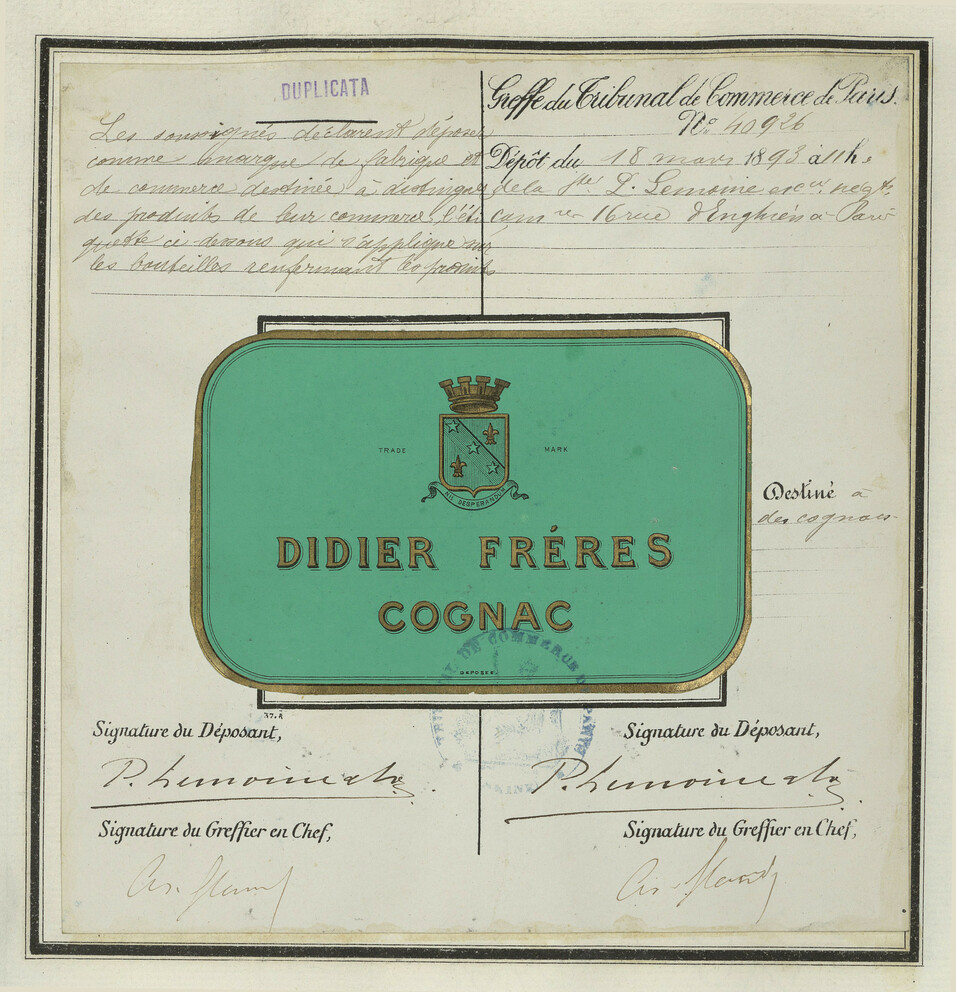 DUPLICATA
Les soussignés déclarent déposer
comme marque de fabrique et
de commerce destinée à distinguer
des produits de leur commerce, l'éti
quette ci-dessous qui s'applique sur
les bouteilles renfermant les produits
Greffe du Tribunal de Commerce de Paris.
No 40926
Dépôt du 18 mars 1893 à 11h.
de la Sté P. Lemoine et Cie, négts
16 rue d'Enghien à Paris
TRADE MARK
NIL DESPERANDUM
DIDIER FRÉRES
COGNAC
DÉPOSÉE
TRIBUNAL DE COMMERCE DE PARIS
Destiné à
des cognacs
37.A
Signature du Déposant,
P. Lemoine & Co
Signature du Greffier en Chef,
Signature du Déposant,
P. Lemoine & Co
Signature du Greffier en Chef,